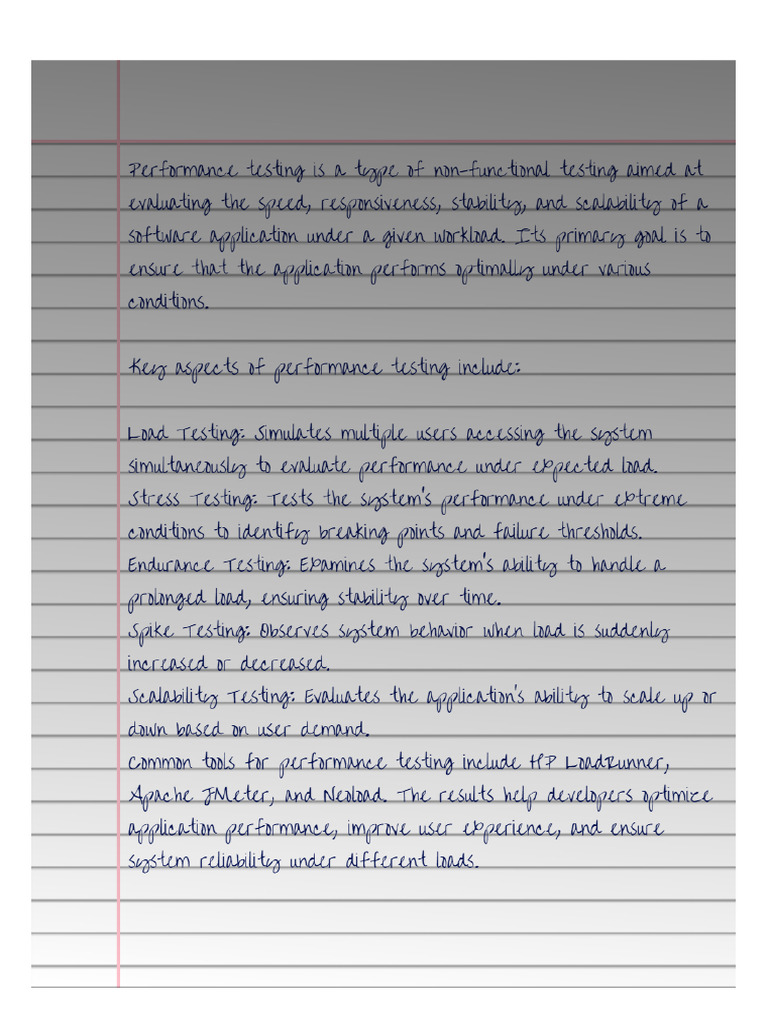 Performance testing is a type of non-functional testing aimed at
evaluating the speed, responsiveness, stability, and scalability of a
software application under a given workload. Its primary goal is to
ensure that the application performs optimally under various
conditions.
Key aspects of performance testing include:
Load Testing: Simulates multiple users accessing the system
simultaneously to evaluate performance under expected load.
Stress Testing: Tests the system's performance under extreme
conditions to identify breaking points and failure thresholds.
Endurance Testing: Examines the system's ability to handle a
prolonged load, ensuring stability over time.
Spike Testing: Observes system behavior when load is suddenly
increased or decreased.
Scalability Testing: Evaluates the application's ability to scale up or
down based on user demand.
Common tools for performance testing include HP LoadRunner,
Apache JMeter, and Neoload. The results help developers optimize
application performance, improve user experience, and ensure
system reliability under different loads.